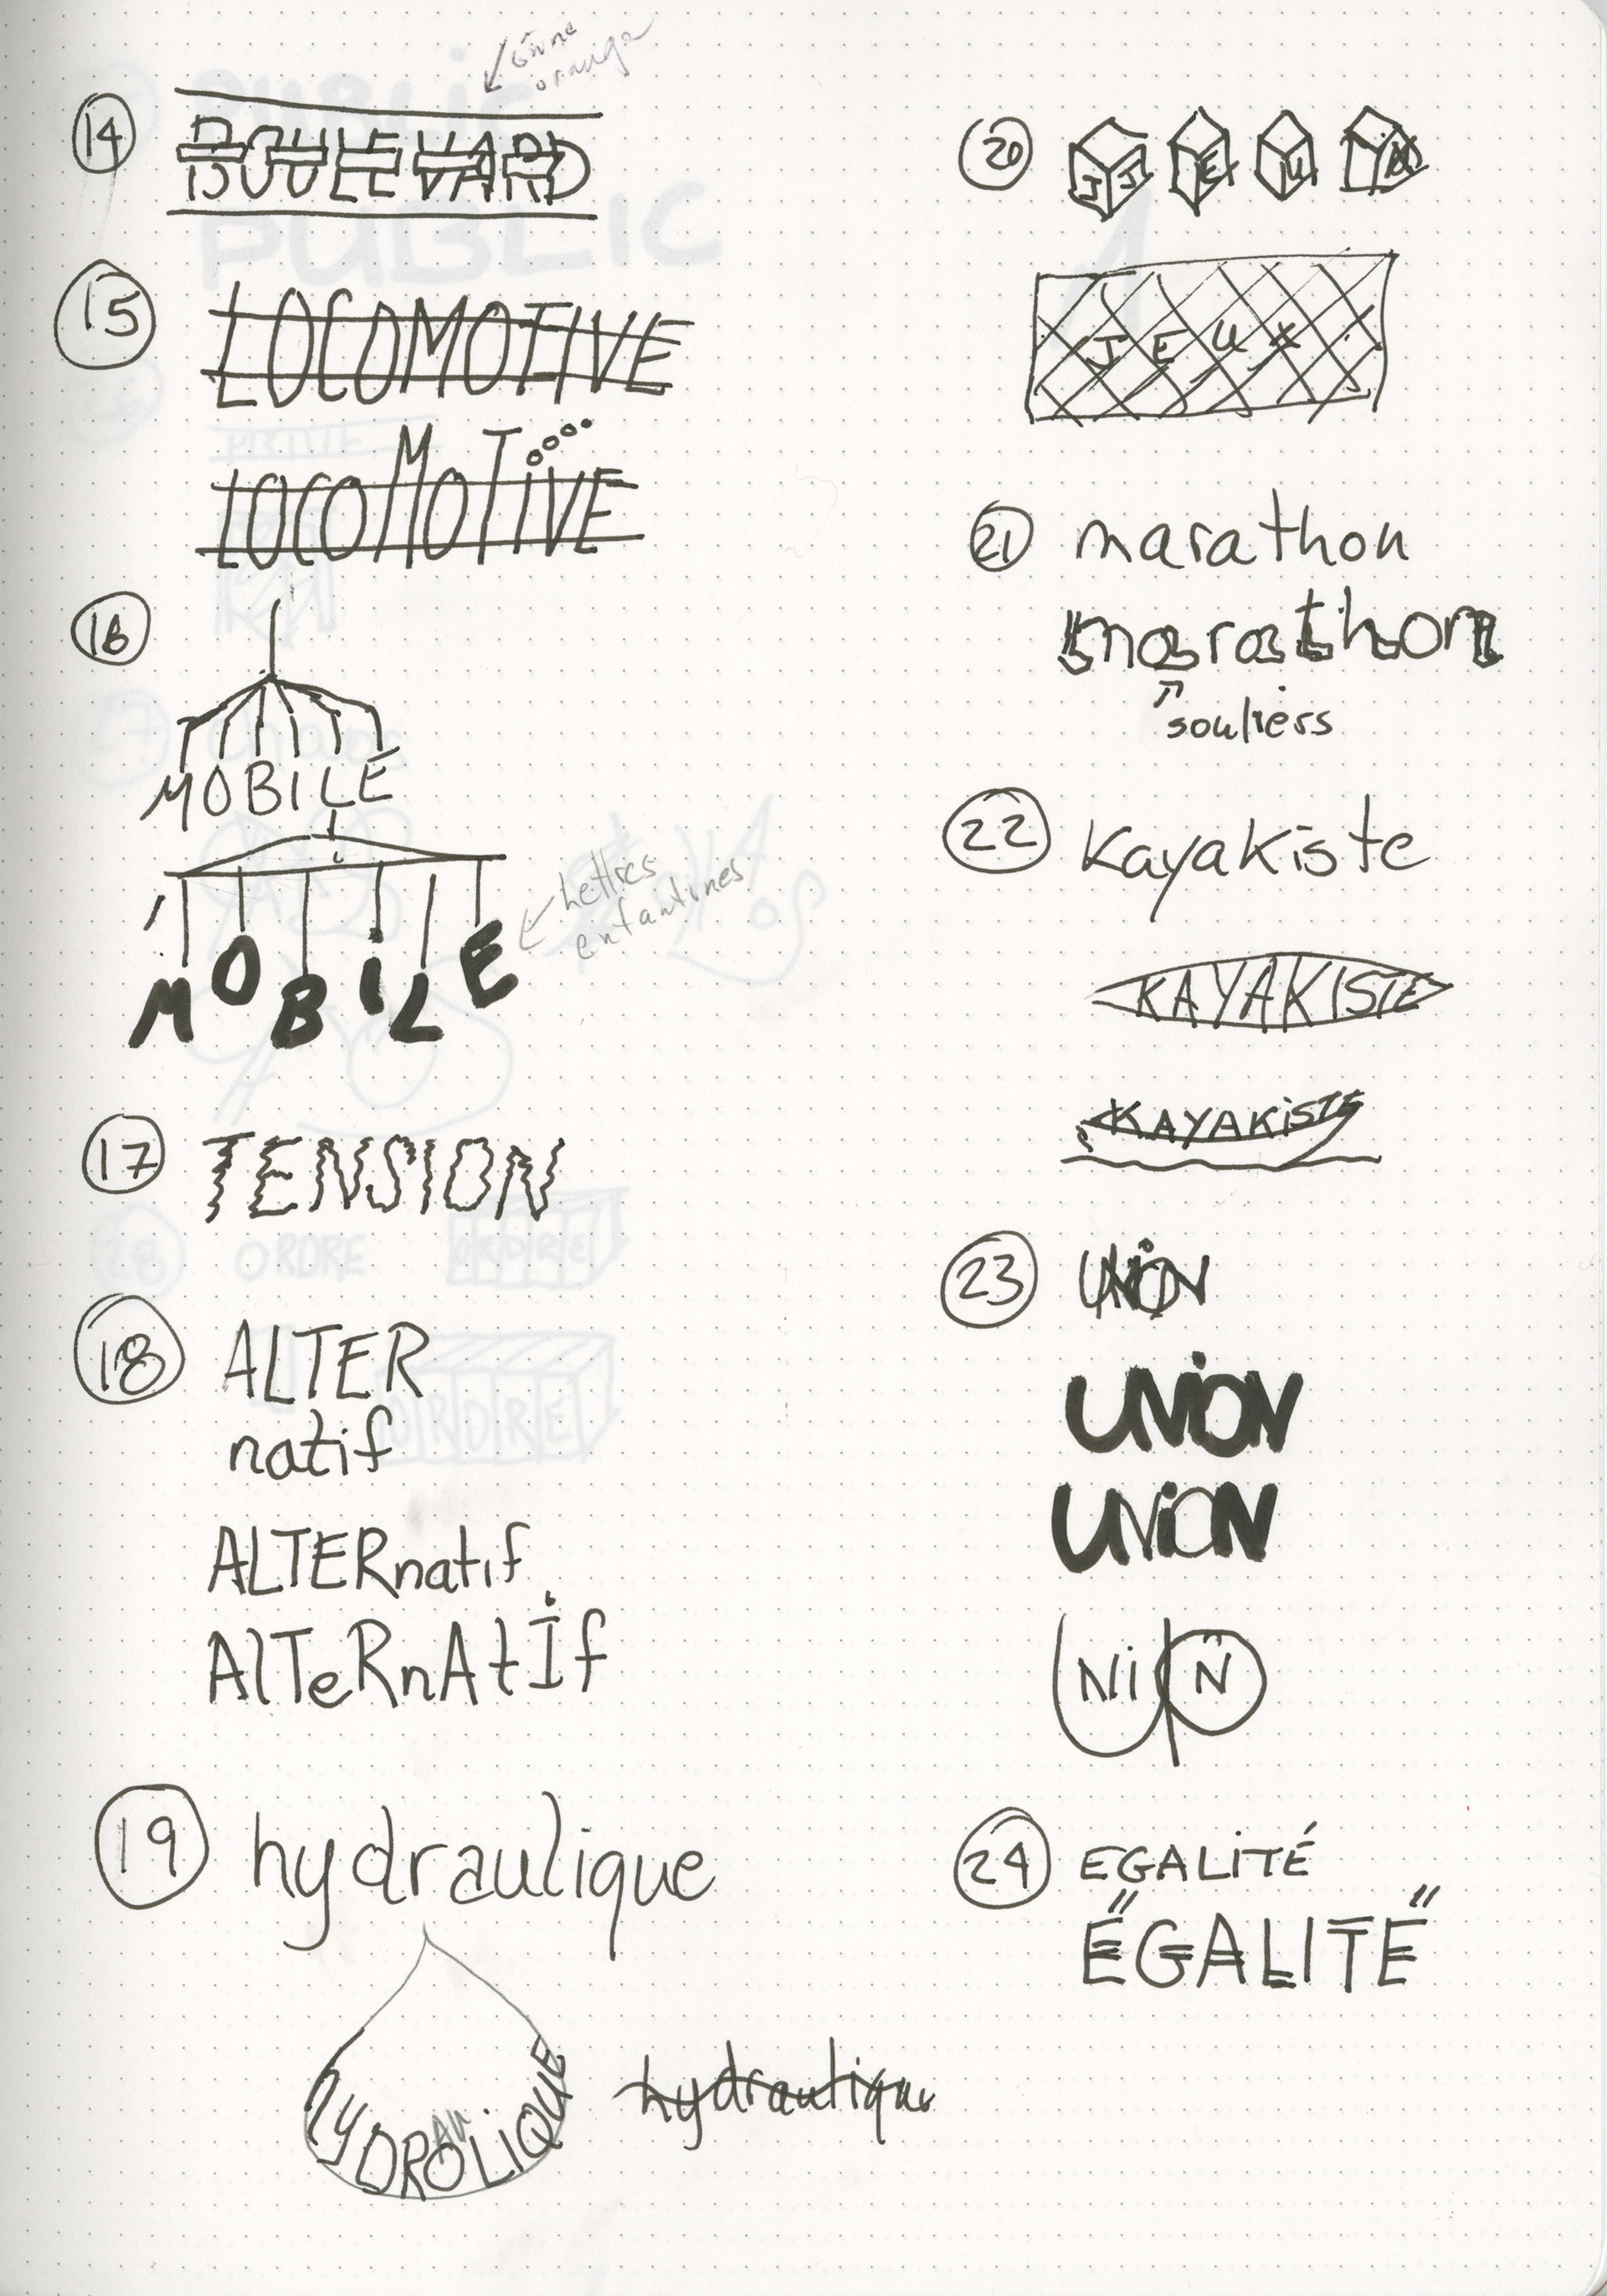 14 BOULEVARD
15 LOCOMOTIVE
LOCOMOTiVE
16
MOBILE
MOBiLE
lettres
enfantines
17 TENSION
18 ALTER
natif
ALTERnatif
AlTeRnAtİf
19 hydraulique
hYDROLiQUE
AU
hydraulique
20 J J E U X
J E U X
21 marathon
marathon
souliers
22 Kayakiste
KAYAKISTE
KAYAKiSTE
23 UNiON
UNiON
UNiON
UNiON
24 EGALiTÉ
ÉGALITÉ